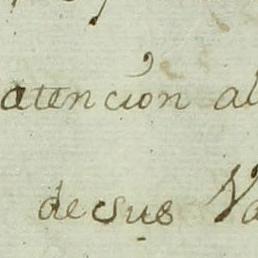 atencion al
de sus